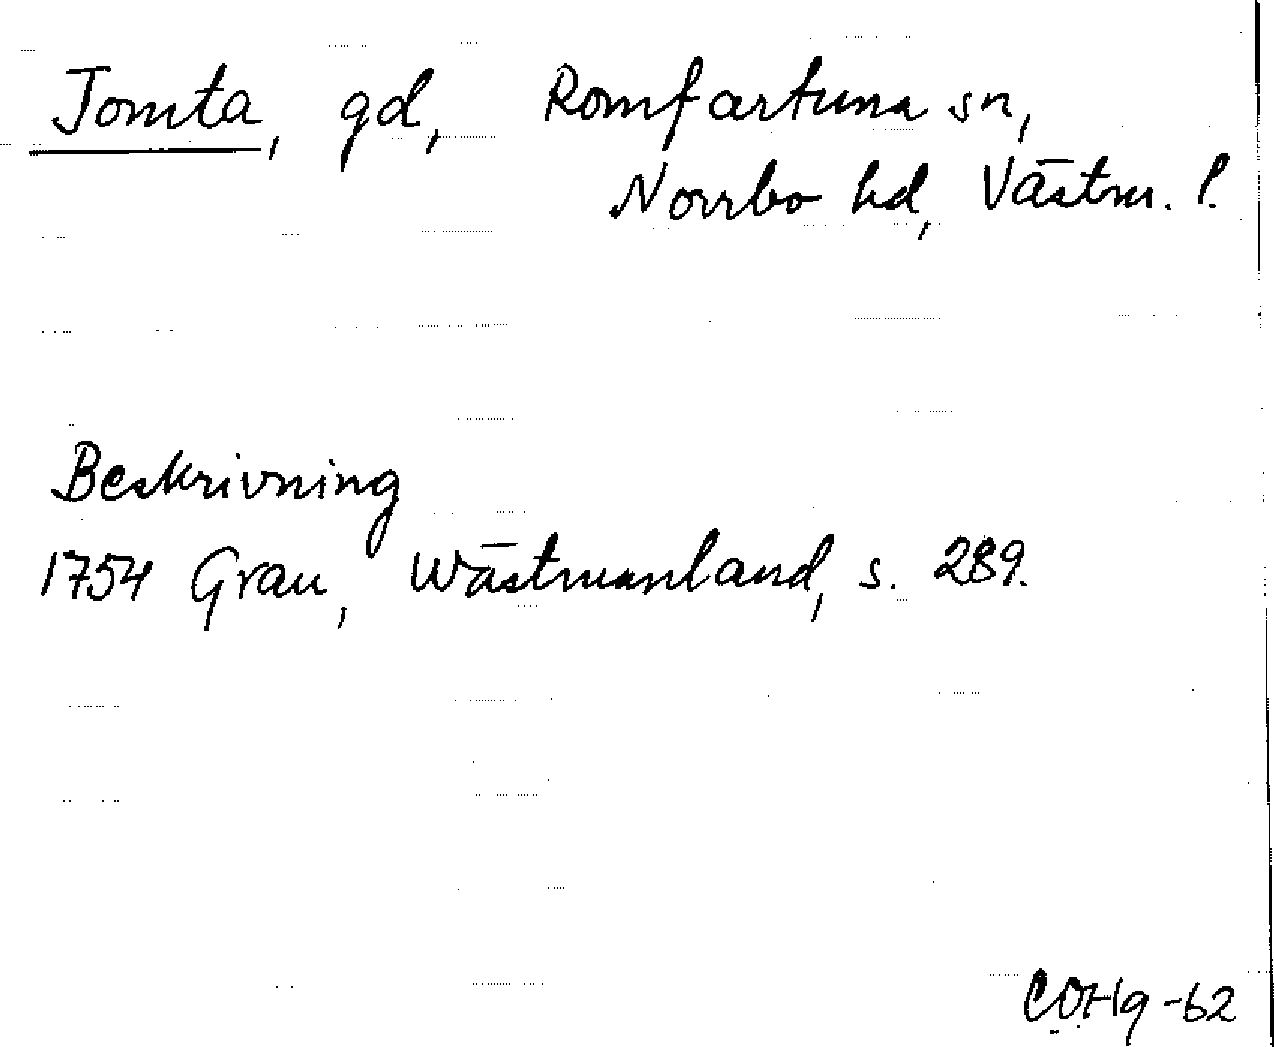 Jomta, gd, Romfartuna sn,
Norrbo hd, Västm. l.
Beskrivning
1754 Grau, Wästmanland, s. 289.
COHg-62